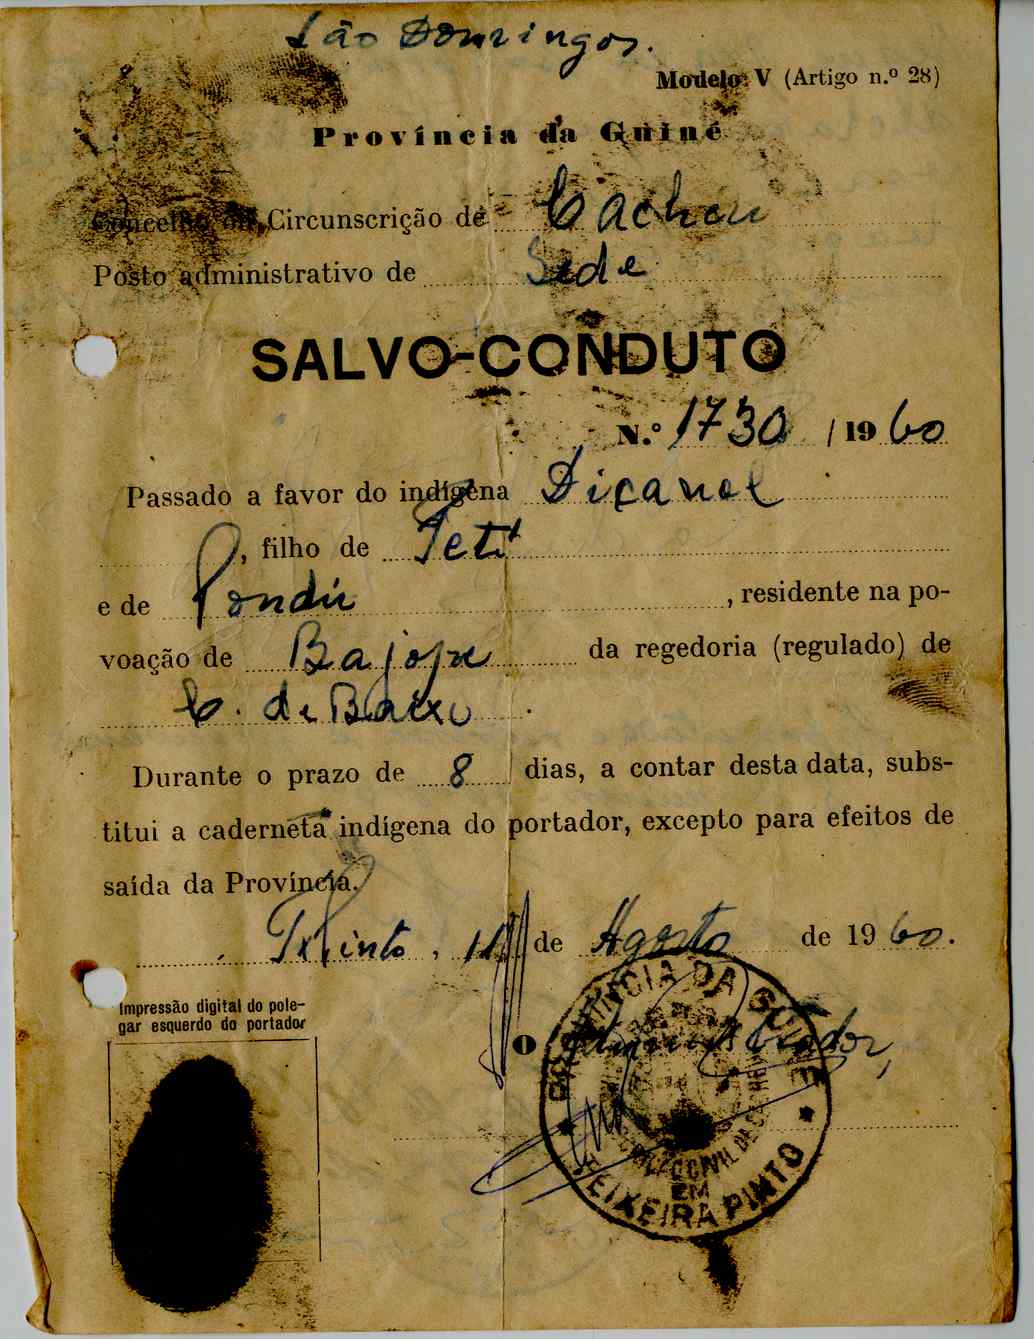 São Domingos.
Modelo V (Artigo n.º 28)
Província da Guiné
Concelho ou Circunscrição de Cacheu
Posto administrativo de Sede
SALVO-CONDUTO
N.º 1730 / 19 60
Passado a favor do indígena Diçanel
, filho de Teti
e de Pondú, residente na po-
voação de Bajope da regedoria (regulado) de
C. de Baixo.
Durante o prazo de 8 dias, a contar desta data, subs-
titui a caderneta indígena do portador, excepto para efeitos de
saída da Província.
T. Pinto, 11 de Agosto de 19 60.
Impressão digital do pole-
gar esquerdo do portador
O Administrador,
PROVÍNCIA DA GUINÉ
EM
TEIXEIRA PINTO